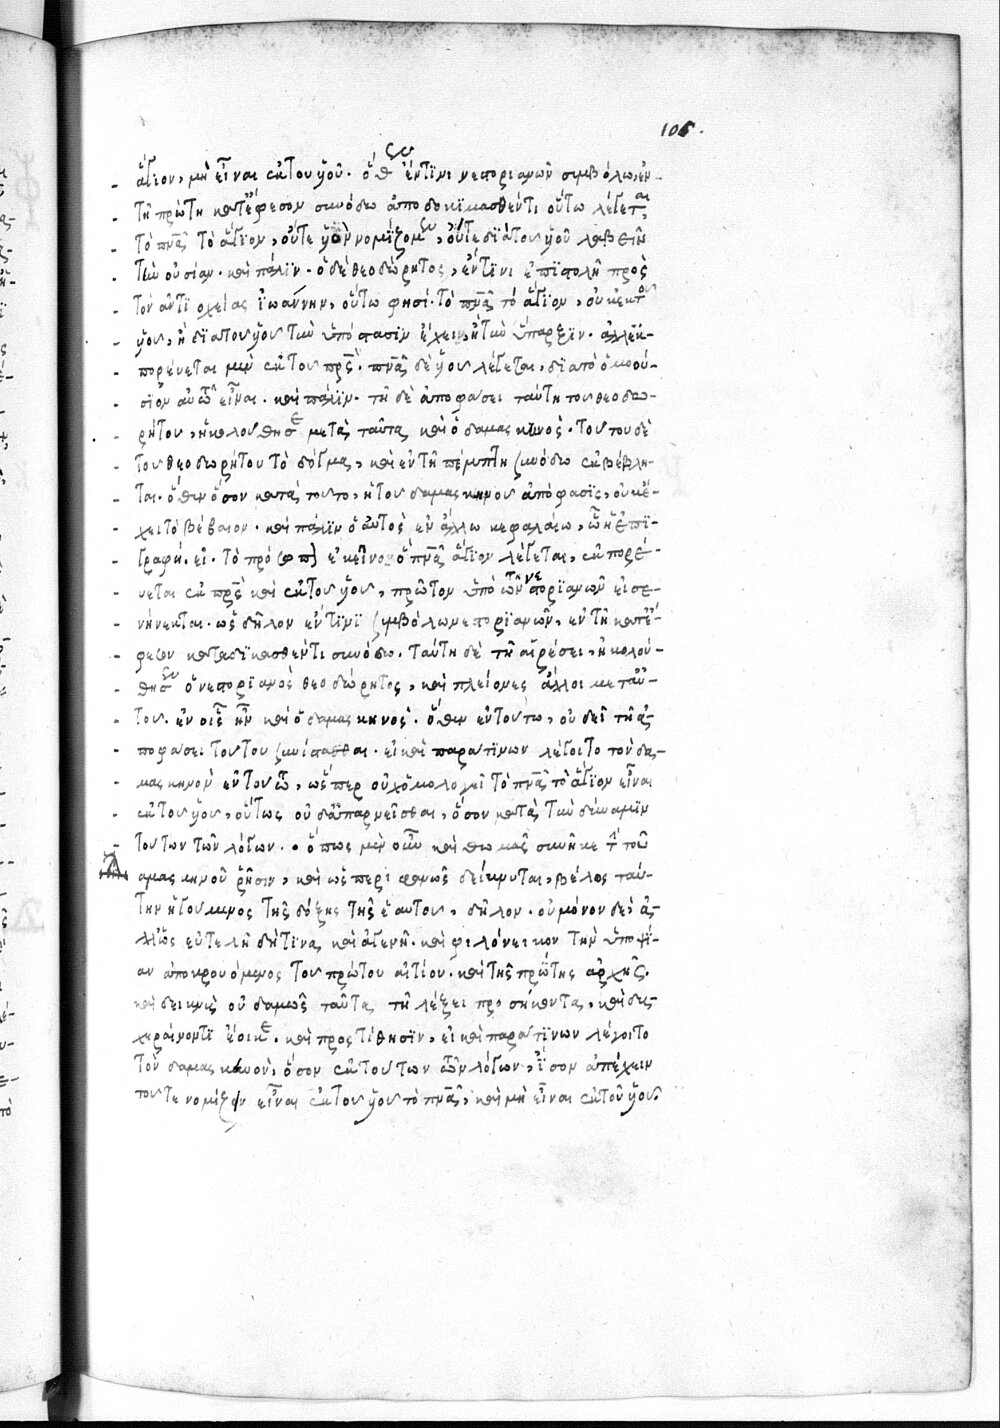 106.
ἅγιον, μὴ εἶναι ἐκ τοῦ υἱοῦ. ὅθ ἔν τινι νεστοριανῶν συμβόλω, ἐν
τῆ πρώτη κατ' ἔφεσον συνόδω ἀποδοκιμασθέντι, οὕτω λέγεται
τὸ πνᾶ τὸ ἅγιον, οὔτε υἱὸν νομίζομεν, οὔτε διὰ τοῦ υἱοῦ λαβεῖν
τὴν οὐσίαν. καὶ πάλιν. ὁ δὲ θεοδώρητος, ἔν τινι ἐπιστολῆ πρὸς
τὸν ἀντιοχείας ἰωάννην, οὕτω φησί. τὸ πνᾶ τὸ ἅγιον, οὐκ ἐκ τοῦ
υἱοῦ, ἢ διὰ τοῦ υἱοῦ τὴν ὑπόστασιν ἔχειν, ἢ τὴν ὕπαρξιν. ἀλλ' ἐκ-
πορεύεται μὲν ἐκ τοῦ πρς. πνᾶ δὲ υἱοῦ λέγεται, διὰ τὸ ὁμοού-
σιον αὐτῶ εἶναι. καὶ πάλιν. τῆ δὲ ἀποφάσει ταύτη τοῦ θεοδω-
ρήτου, ἠκολούθησε μετὰ ταῦτα καὶ ὁ δαμασκηνός. τούτου δὲ
τοῦ θεοδωρήτου τὸ δόγμα, καὶ ἐν τῆ πέμπτη συνόδω ἐκβέβλη-
ται. ὅθεν ὅσον κατὰ τοῦτο, ἡ τοῦ δαμασκηνοῦ ἀπόφασις, οὐκ ἔ-
χει τὸ βέβαιον. καὶ πάλιν ὁ αὐτὸς ἐν ἄλλω κεφαλαίω, ὧ ἡ ἐπι-
γραφή. εἰ. τὸ πρό ἐκεῖνο ὁ πνᾶ ἅγιον λέγεται, ἐκπορεύ-
εται ἐκ πρς καὶ ἐκ τοῦ υἱοῦ, πρῶτον ὑπὸ τῶν νεστοριανῶν εἰσε-
νήνεκται. ὡς δῆλον ἔν τινι συμβόλω νεστοριανῶν, ἐν τῆ κατ' ἔ-
φεσον καταδικασθέντι συνόδω. ταύτη δὲ τῆ αἱρέσει, ἠκολού-
θησεν ὁ νεστοριανὸς θεοδώρητος, καὶ πλείονες ἄλλοι μετ' αὐ-
τοῦ. ἐν οἷς ἦν καὶ ὁ δαμασκηνός. ὅθεν ἐν τούτω, οὐ δεῖ τῆ ἀ-
ποφάσει τούτου συνίστασθαι. εἰ καὶ παρά τινων λέγοιτο τὸν δα-
μασκηνὸν ἐν τούτω, ὥσπερ οὐχ ὁμολογεῖ τὸ πνᾶ τὸ ἅγιον εἶναι
ἐκ τοῦ υἱοῦ, οὕτως οὐδ' ἀπαρνεῖσθαι, ὅσον κατὰ τὴν δύναμιν
τούτων τῶν λόγων. ὅπως μὲν οὖν καὶ θωμᾶς συνῆκε τὴν τοῦ
δαμασκηνοῦ ῥῆσιν, καὶ ὥσπερ εἰκὸς δείκνυται, βέλος ταύ-
την ἡγούμενος τῆς δόξης τῆς ἑαυτοῦ, δῆλον. οὐ μόνον δὲ, ἀλ-
λ' ὡς εὐτελῆ δή τινα καὶ ἀγενῆ. καὶ φιλόνεικον τὴν ὑποψί-
αν ἀποκρουόμενος τοῦ πρώτου αἰτίου. καὶ τῆς πρώτης ἀρχῆς.
καὶ δεικνὺς οὐδαμῶς ταῦτα τῆ λέξει προσήκοντα, καὶ δυσ-
χεραίνοντι ἔοικε. καὶ προστίθησιν, εἰ καὶ παρά τινων λέγοιτο
τὸν δαμασκηνὸν, ὅσον ἐκ τούτων τῶν λόγων, ἴσον ἀπέχειν
τοῦ τε νομίζειν εἶναι ἐκ τοῦ υἱοῦ τὸ πνᾶ, καὶ μὴ εἶναι ἐκ τοῦ υἱοῦ.